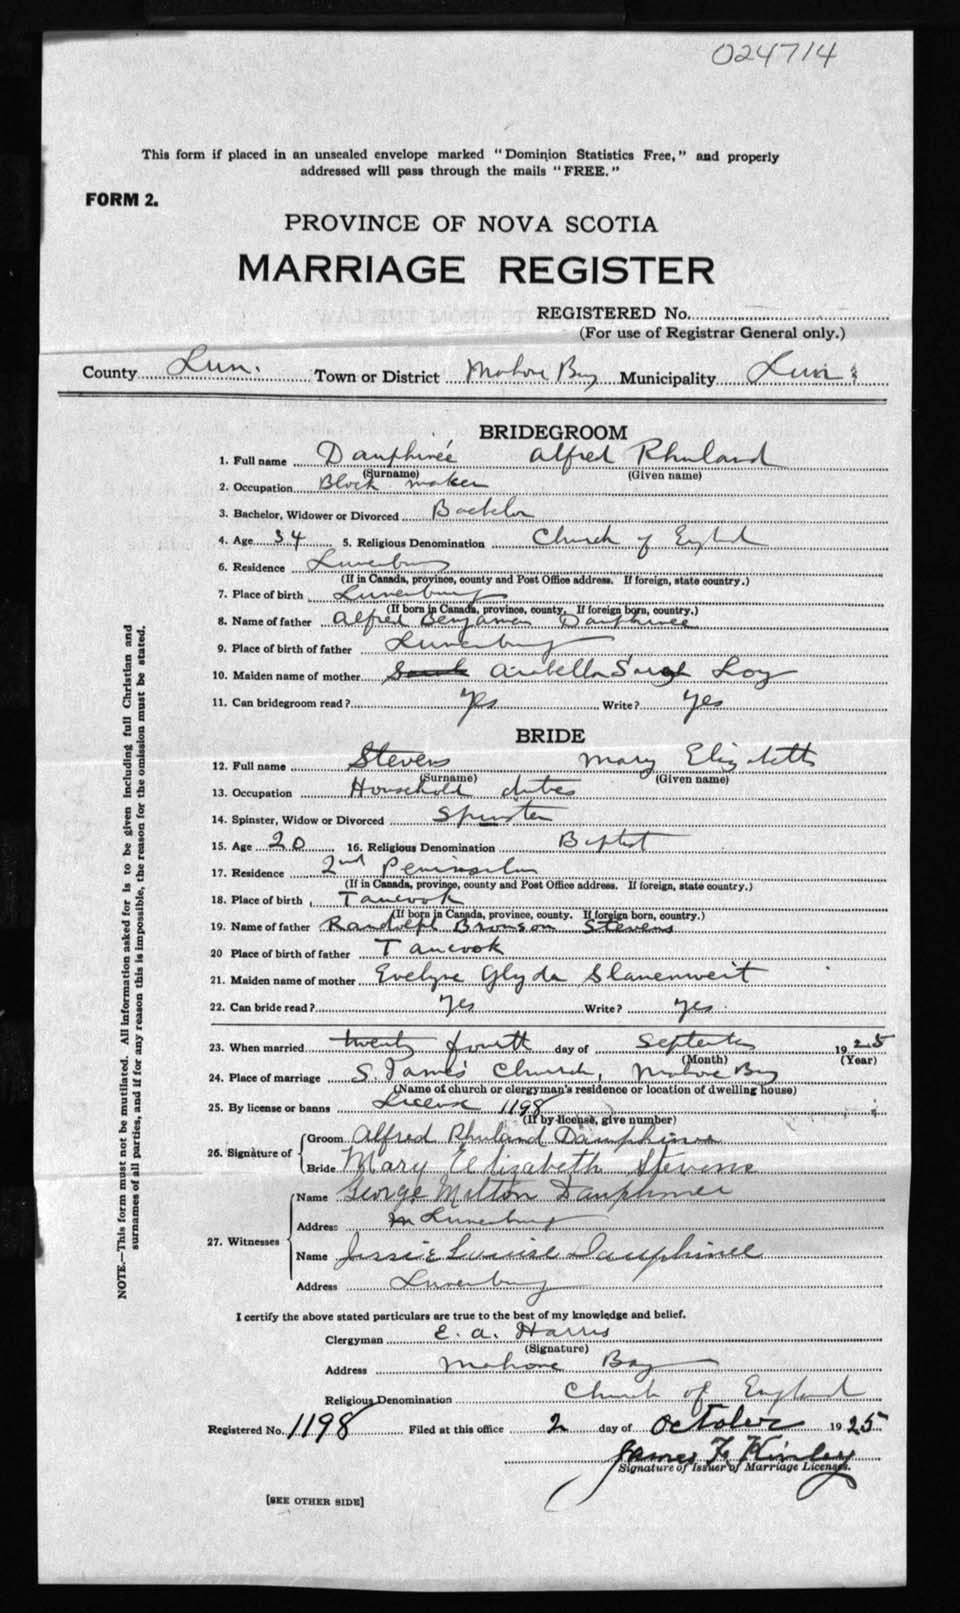 024714
This form if placed in an unsealed envelope marked "Dominion Statistics Free," and properly
addressed will pass through the mails "FREE."
FORM 2.
PROVINCE OF NOVA SCOTIA
MARRIAGE REGISTER
REGISTERED No.
(For use of Registrar General only.)
County Lun. Town or District Mahone Bay Municipality Lun:
BRIDEGROOM
1. Full name Dauphineé Alfred Rhuland
(Surname) (Given name)
2. Occupation Block maker
3. Bachelor, Widower or Divorced Bachelor
4. Age 34 5. Religious Denomination Church of England
6. Residence Lunenburg
(If in Canada, province, county and Post Office address. If foreign, state country.)
7. Place of birth Lunenburg
(If born in Canada, province, county. If foreign born, country.)
8. Name of father Alfred Benjamin Dauphinee
9. Place of birth of father Lunenburg
10. Maiden name of mother Sarah Arabella Sarah Loy
11. Can bridegroom read? Yes Write? Yes
BRIDE
12. Full name Stevens Mary Elizabeth
(Surname) (Given name)
13. Occupation Household duties
14. Spinster, Widow or Divorced Spinster
15. Age 20 16. Religious Denomination Baptist
17. Residence 2nd Peninsula
(If in Canada, province, county and Post Office address. If foreign, state country.)
18. Place of birth Tancook
(If born in Canada, province, county. If foreign born, country.)
19. Name of father Randolph Bronson Stevens
20 Place of birth of father Tancook
21. Maiden name of mother Evelyne Glyda Slauenweit
22. Can bride read? Yes Write? Yes.
23. When married twenty fourth day of September 1925
(Month) (Year)
24. Place of marriage S. James' Church, Mahone Bay
(Name of church or clergyman's residence or location of dwelling house)
25. By license or banns License 1198
(If by license, give number)
26. Signature of
Groom Alfred Rhuland Dauphinee
Bride Mary Elizabeth Stevens
27. Witnesses
Name George Milton Dauphinee
Address Lunenburg
Name Jessie Louise Dauphinee
Address Lunenburg
I certify the above stated particulars are true to the best of my knowledge and belief.
Clergyman E. A. Harris
(Signature)
Address Mahone Bay
Religious Denomination Church of England
Registered No. 1198 Filed at this office 2 day of October 1925
James F. Kinley
Signature of Issuer of Marriage Licenses.
[SEE OTHER SIDE]
NOTE.—This form must not be mutilated. All information asked for is to be given including full Christian and
surnames of all parties, and if for any reason this is impossible, the reason for the omission must be stated.